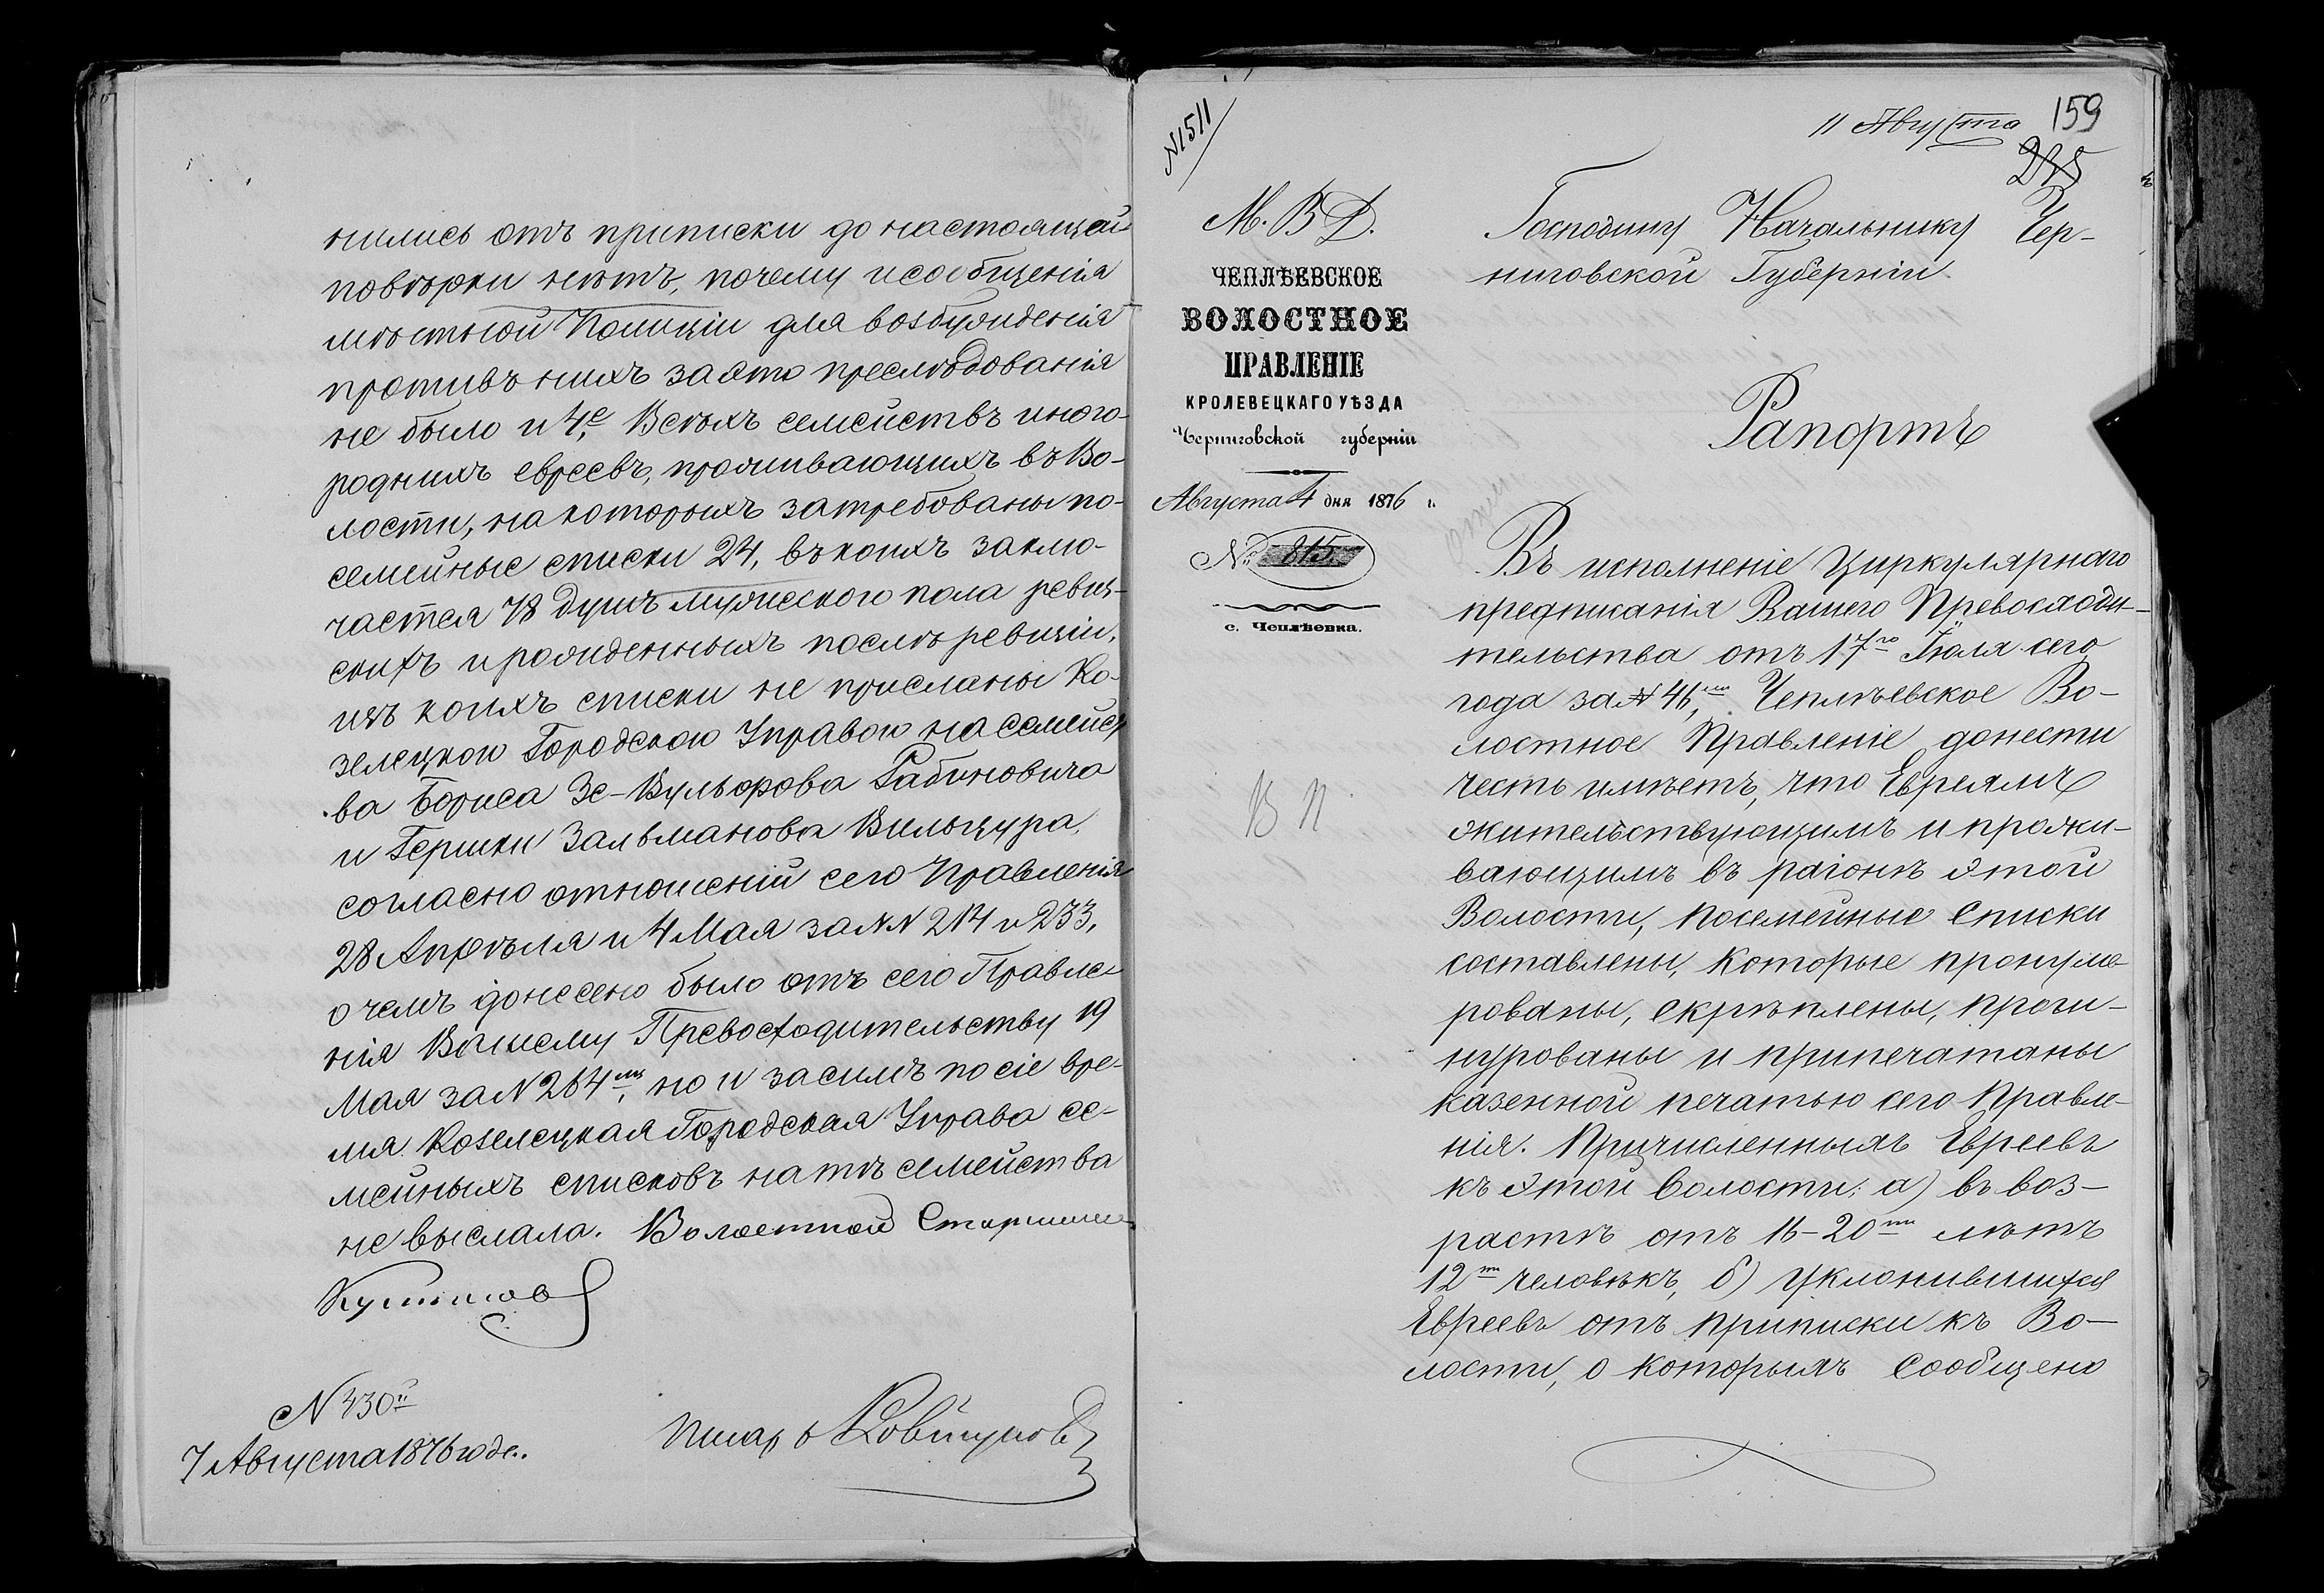 нились отъ приписки до настоящей
повѣрки нѣтъ, почему и сообщенія
мѣстной Полиціи для возбужденія
противъ нихъ за это преслѣдованія
не было и 4,е Всѣхъ семействъ иного-
родныхъ евреевъ, проживающихъ въ Во-
лости, на которыхъ затребованы по-
семейные списки 24, въ коихъ заклю-
чается 78 душъ мужескаго пола ревиз-
скихъ и рожденныхъ послѣ ревизіи,
изъ коихъ списки не присланы Ко-
зелецкою Городскою Управою на семейст
ва Бориса Эс-Вульфова Рабиновича
и Гершки Зальманова Вильцура,
согласно отношеній сего Правленія
28 Апрѣля и 4 Мая за №№ 214 и 233,
о чемъ донесено было отъ сего Правле-
нія Вашему Превосходительству 19
Мая за № 264мъ, но и засимъ по сіе вре-
мя Козелецкая Городская Управа се-
мейныхъ списковъ на тѣ семейства
не выслала. Волостной Старшина
№ 430й
7 Августа 1876 года.
Писарь
№1511
11 Августа
159
215
М. В. Д.
ЧЕПЛѢЕВСКОЕ
ВОЛОСТНОЕ
ПРАВЛЕНІЕ
КРОЛЕВЕЦКАГО УѢЗДА
Черниговской губерніи
Августа 4 дня 1876 г.
№ 815
с. Чеплѣевка.
В П
Господину Начальнику Чер-
ниговской Губерніи
Рапортъ
Въ исполненіе Циркулярнаго
предписанія Вашего Превосходи-
тельства отъ 17го Іюля сего
года за № 46,мъ Чеплѣевское Во-
лостное Правленіе донести
честь имѣетъ, что Евреямъ
жительствующимъ и прожи-
вающимъ въ раіонѣ этой
Волости, посемейные Списки
составлены, которые пронуме-
рованы, скрѣплены, прошн-
урованы и припечатаны
казенной печатью сего Правле-
нія. Причисленныхъ Евреевъ
къ этой Волости: а) въ воз-
растѣ отъ 16-20ти лѣтъ
12ти человѣкъ, б) уклонившихся
Евреевъ отъ приписки къ Во-
лости, о которыхъ сообщено